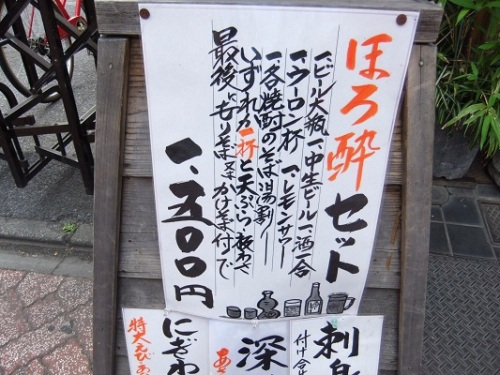 ほろ酔セット
一、ビール大瓶 一、中生ビール 一、酒一合
一、ウーロン杯 一、レモンサワー
一、各焼酎のそば湯割り
いずれか一杯と天ぷら・板わさ
最後にもり又はかけ付で
一、五〇〇円
刺身
付け合
深
にぎわ
特大えび